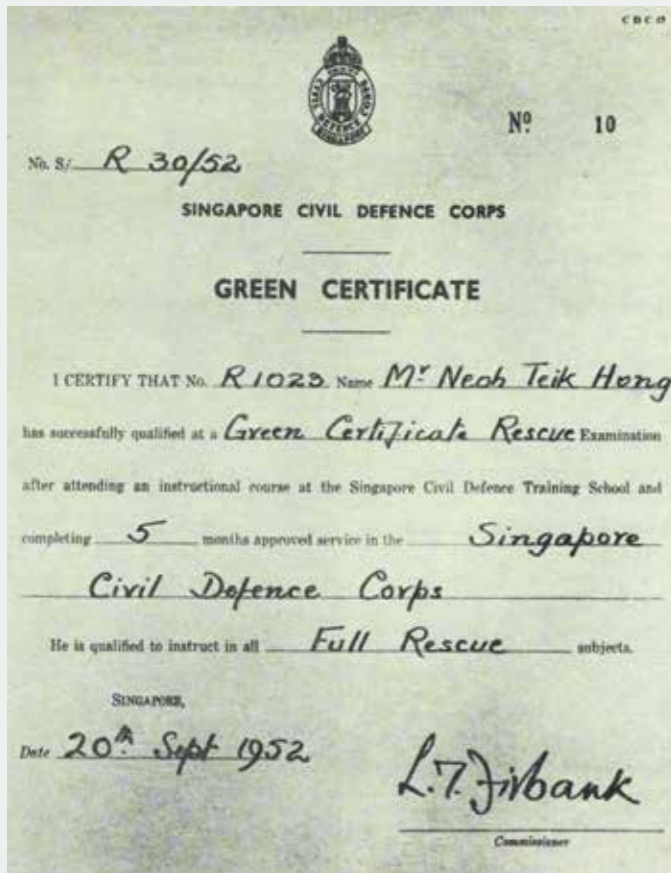 Nº 10
No. S/ R 30/52
SINGAPORE CIVIL DEFENCE CORPS
GREEN CERTIFICATE
I CERTIFY THAT No. R 1023 Name Mr Neoh Teik Hong
has successfully qualified at a Green Certificate Rescue Examination
after attending an instructional course at the Singapore Civil Defence Training School and
completing 5 months approved service in the Singapore
Civil Defence Corps
He is qualified to instruct in all Full Rescue subjects.
SINGAPORE,
Date 20th Sept 1952
L.T. Firbank
Commissioner